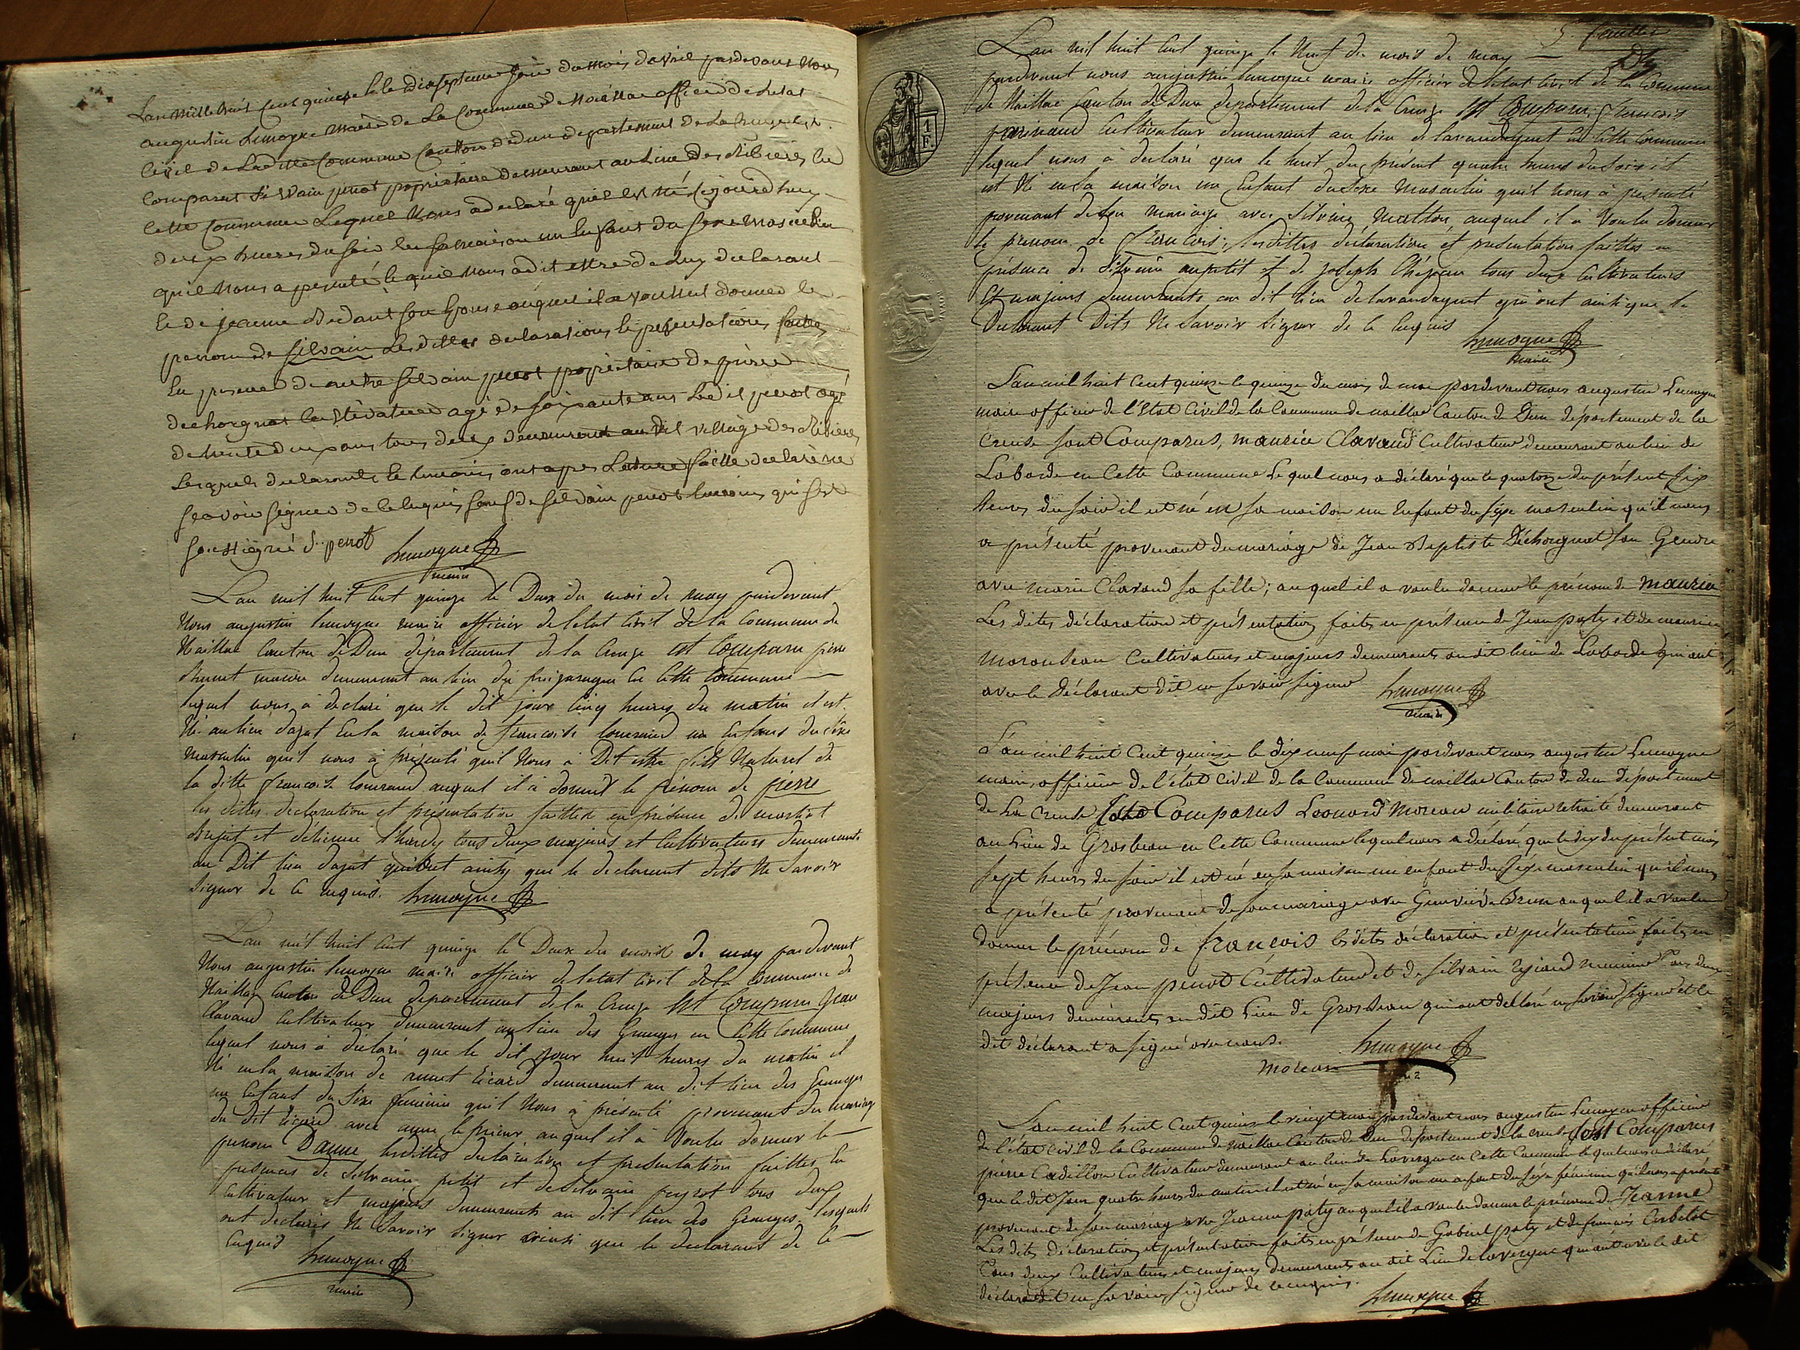 Lan mille huit Cent quinze le dixseptieme Jour du mois davril pardevant nous
augustin Lemoyne maire de La Commune de noaillac officier de letat
civil de Laditte Commune Canton de dun departement de La Creuse est
comparut Silvain penot propriétaire demeurant au lieu des Ribieres en
cette Commune Lequel nous a declaré quil est né cejourdhuy
deux heures du soir en sa maison un Enfant du sexe masculin
quil nous a presenté lequel nous a dit estre de luy declarant
et de jeanne dedant son Epouse auquel il a voullut donner le
prenom de Silvain Lesdittes declarations et presentations faittes
En presence de autre Silvain penot propriétaire
dechorgnat Cultivateur agé de soixante ans Ledit penot agé
de trente deux ans tous deux demeurant audit village des Ribieres
Lesquels declarants et temoins ont apres Lecture faitte declaré ne
scavoir signer de ce enquis sauf de Silvain penot temoins qui s'est
soussigné S. penot Lemoyne
maire
Lan mil huit Cent quinze le Deux du mois de may pardevant
Nous augustin lemoyne maire officier de letat Civil de la Commune de
Naillac Canton de Dun département de la Creuze est Comparu pierre
maire demeurant au lieu du en Cette Commune
lequel nous à declaré que le dit jour Cinq heures du matin il est
Né au lieu dajat En la maison de francoise un Enfant du sexe
masculin qu'il nous à présenté qu'il Nous à Dit estre fils Naturel de
la ditte francoise auquel il à donné le prénom de pierre
les dittes declaration et présentation faittes en présence de martial
et detienne hardy tous deux majeurs et Cultivateurs demeurants
au Dit lieu dajat qui ont ainsy que le declarant dits Ne Savoir
Signer de Ce enquis. Lemoyne
Lan mil huit Cent quinze le Deux du mois de may pardevant
Nous augustin lemoyne maire officier de letat Civil de la Commune de
Naillac Canton de Dun département de la Creuze Est Comparu Jean
Clavaud Cultivateur demeurant au lieu des Granges en Cette Commune
lequel nous à declaré que le dit jour huit heures du matin il
Né en la maison de annet Ricard demeurant au dit lieu des Granges
un Enfant du Sexe feminin qu'il Nous à présenté provenant du mariage
du dit Ricard avec anne le prieur auquel il à Voulu donner le
prenom Danne lesdittes declaration et presentation faittes En
presences de Silvain petit et de Silvain peyrot tous deux
Cultivateur et majeurs demeurants au dit lieu des Granges lesquels
ont declarés Ne Savoir Signer ainsi que le declarant de Ce
Enquis Lemoyne
maire
5. feuillet
Lan mil huit Cent quinze le Neuf du mois de may
pardevant nous augustin lemoyne maire officier de letat Civil de la Commune
de Naillac Canton de Dun departement de la Creuze Est Comparu Francois
parinaud Cultivateur demeurant au lieu de lavaudaguet en Cette Commune
lequel nous à declaré que le huit du présent quatre heures du Soir il
est Né en sa maison un Enfant du Sexe Masculin qu'il nous à presenté
provenant de son mariage avec Silvine Matton, auquel il à Voulu donner
le prenom de Francois; lesdittes déclaration et présentation faittes en
présence de Silvain aupetit et de joseph Chéjean tous deux Cultivateurs
Et majeurs demeurants au dit lieu de lavaudaguet qui ont ainsi que le
Declarant Dits Ne Savoir Signer de Ce Enquis Lemoyne
maire
L'an mil huit Cent quinze le quinze du mois de mai pardevant nous augustin Lemoyne
maire officier de l'état Civil de la Commune de noaillac Canton de Dun département de la
Creuse sont Comparus, maurice Clavaud Cultivateur demeurant au lieu de
Laborde en Cette Commune Lequel nous a déclaré que le quatorze du présent six
heures du soir il est né en sa maison un Enfant du sexe masculin qu'il nous
a présenté provenant du mariage de Jean Baptiste Déchorgnat son Gendre
avec marie Clavaud sa fille; auquel il a voulu donner le prénom de maurice
Les dites déclaration et présentation faites en présence de Jean paty et de maurice
moronbeau Cultivateurs et majeurs demeurants audit lieu de Laborde qui ont
avec le Déclarant dit ne savoir signer Lemoyne
maire
L'an mil huit Cent quinze le dix neuf mai pardevant nous augustin Lemoyne
maire, officier de l'état Civil de la Commune de noaillac Canton de dun département
de La Creuse sont Comparus Léonard moreau militaire retraité demeurant
au Lieu de Grosbeau en Cette Commune lequel nous a déclaré que le dix du présent mois
sept heures du soir il est né en sa maison un enfant du sexe masculin qu'il nous
a présenté provenant de son mariage avec Genevieve Brun auquel il a voulu
donner le prénom de françois les dites déclaration et présentation faites en
présence de Jean penot Cultivateur et de Silvain tous deux
majeurs demeurants au dit Lieu de Grosbeau qui ont déclaré ne savoir signer et le
dit déclarant a signé avec nous. Lemoyne
moreau
L'an mil huit Cent quinze le vingt mai pardevant nous augustin Lemoyne officier
de l'état civil de la Commune de noaillac Canton de Dun département de la creuse est Comparus
pierre Cadillon Cultivateur demeurant au lieu de Lavergne en Cette Commune lequel nous a déclaré
que le dit Jour quatre heures du matin il est né en sa maison un enfant du sexe féminin qu'il nous a présenté
provenant de son mariage avec Jeanne paty auquel il a voulu donner le prénom de Jeanne
Les dites déclaration et présentation faites en présence de Gabriel paty et de francois Corbelot
tous deux Cultivateurs et majeurs demeurants au dit Lieu de lavergne qui ont avec le dit
déclarant dit ne savoir signer de ce enquis. Lemoyne